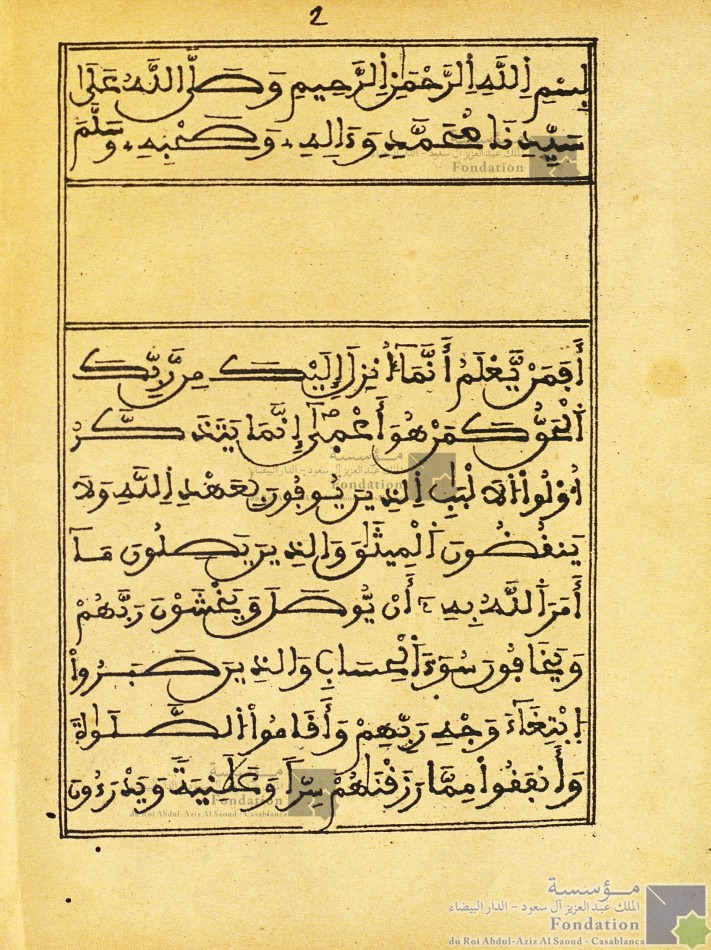 2
بِسْمِ اِللَّهِ اِلرَّحْمَٰنِ اِلرَّحِيمِ وَصَلَّى اَللَّهُ عَلَىٰ
سَيِّدِنَا مُحَمَّدٍ وَءَالِهِۦ وَصَحْبِهِۦ وَسَلَّمَ
أَفَمَنْ يَّعْلَمُ أَنَّمَآ أُنزِلَ إِلَيْكَ مِن رَّبِّكَ
اَلْحَقُّ كَمَنْ هُوَ أَعْمَىٰٓ إِنَّمَا يَتَذَكَّرُ
أُوْلُواْ اُلَالْبَٰبِ اِلذِينَ يُوفُونَ بِعَهْدِ اِللَّهِ وَلَا
يَنقُضُونَ اَلْمِيثَٰقَ وَالذِينَ يَصِلُونَ مَآ
أَمَرَ اَللَّهُ بِهِۦٓ أَنْ يُّوصَلَ وَيَخْشَوْنَ رَبَّهُمْ
وَيَخَافُونَ سُوٓءَ اَلْحِسَابِ وَالذِينَ صَبَرُواْ
اُبْتِغَآءَ وَجْهِ رَبِّهِمْ وَأَقَامُواْ اُلصَّلَوٰةَ
وَأَنفَقُواْ مِمَّا رَزَقْنَاهُمْ سِرّاً وَعَلَٰنِيَةً وَيَدْرَءُونَ
مؤسسة
الملك عبد العزيز آل سعود - الدار البيضاء
Fondation
du Roi Abdul-Aziz Al Saoud - Casablanca